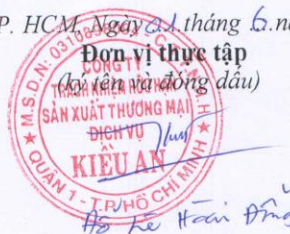 P. HCM, Ngày 21 tháng 6 n
Đơn vị thực tập
(ký tên và đóng dấu)
M.S.D.N: 0310
CÔNG TY
TRÁCH NHIỆM HỮU HẠN
SẢN XUẤT THƯƠNG MẠI
DỊCH VỤ
KIỀU AN
QUẬN 1 - T.P. HỒ CHÍ MINH
Lê Hoài